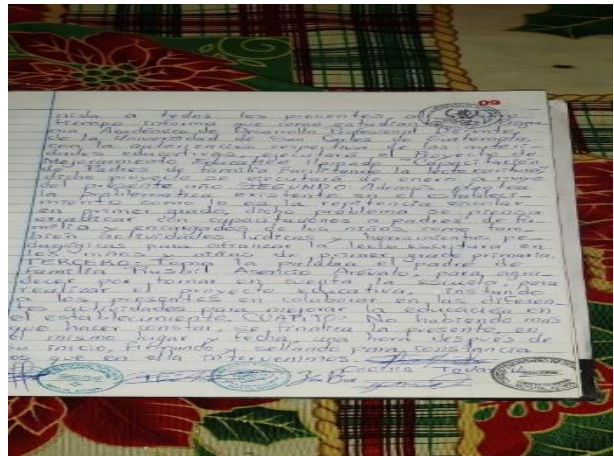 09
nida a todos los presentes al
tiempo informa que como estudiante
ma Académico de Desarrollo Profesional Docente
de la Universidad de San Carlos de Guatemala
con la autorización respectiva de las autori-
dades educativas, ejecutará el Proyecto de
Mejoramiento Educativo llamado "Capacitación
de Padres de familia Facilitando la lectoescritura
dicho proyecto se ejecutará de enero a mayo
del presente año. SEGUNDO: Además plantea
la problemática existente en el estableci-
miento como lo es la repitencia escolar
en primer grado, dicho problema se piensa
erradicar con capacitaciones a padres de fa-
milia y encargados de los niños como tam-
bién actividades lúdicas y herramientas pe-
dagógicas para afianzar la lectoescritura en
los niños y niñas de primer grado primaria.
TERCERO: Toma la palabra el padre de
familia Rusbil Asencio Arévalo para agra-
decer por tomar en cuenta la escuela, para
realizar el proyecto educativo, instando
a los presentes en colaborar en las diferen-
tes actividades para mejorar la educación en
el establecimiento. CUARTO: No habiendo más
que hacer constar, se finaliza la presente, en
el mismo lugar y fecha, una hora después de
su inicio, firmando y sellando para constancia
os que en ella intervenimos.
Cecilia Tova